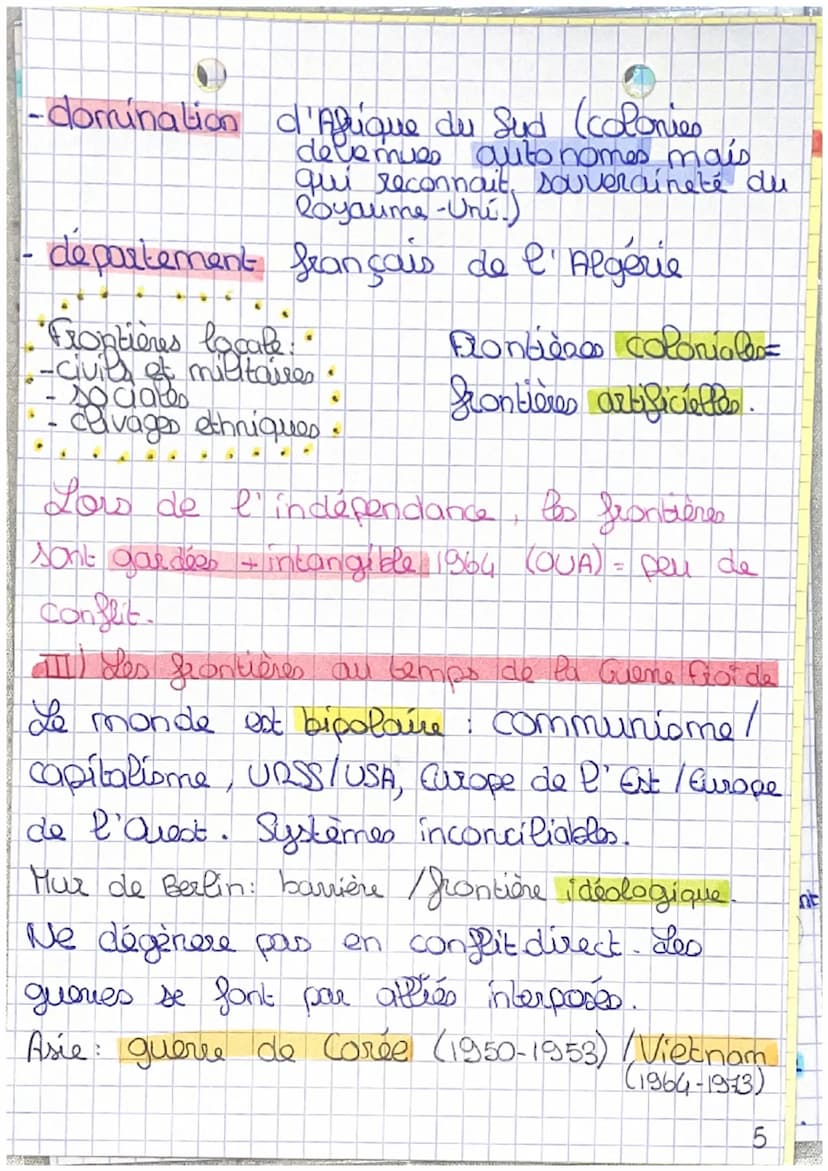 - domination d'Afrique du Sud (colonies
devenues autonomes mais
qui reconnait souveraineté du
Royaume-Uni.)
- département français de l'Algérie
Frontières locale :
- civils et militaires
- sociales
- clivages ethniques
Frontières coloniales =
frontières artificielles.
Lors de l'indépendance, les frontières
sont gardées + intangible 1964 (OUA) = peu de
conflit.
III) Les frontières au temps de la Guerre froide
Le monde est bipolaire : communisme /
capitalisme, URSS/USA, Europe de l'Est / Europe
de l'Ouest. Systèmes inconciliables.
Mur de Berlin : barrière / frontière idéologique.
Ne dégénère pas en conflit direct. Les
guerres se font par alliés interposés.
Asie : guerre de Corée (1950-1953) / Vietnam
(1964-1973)
5
nt